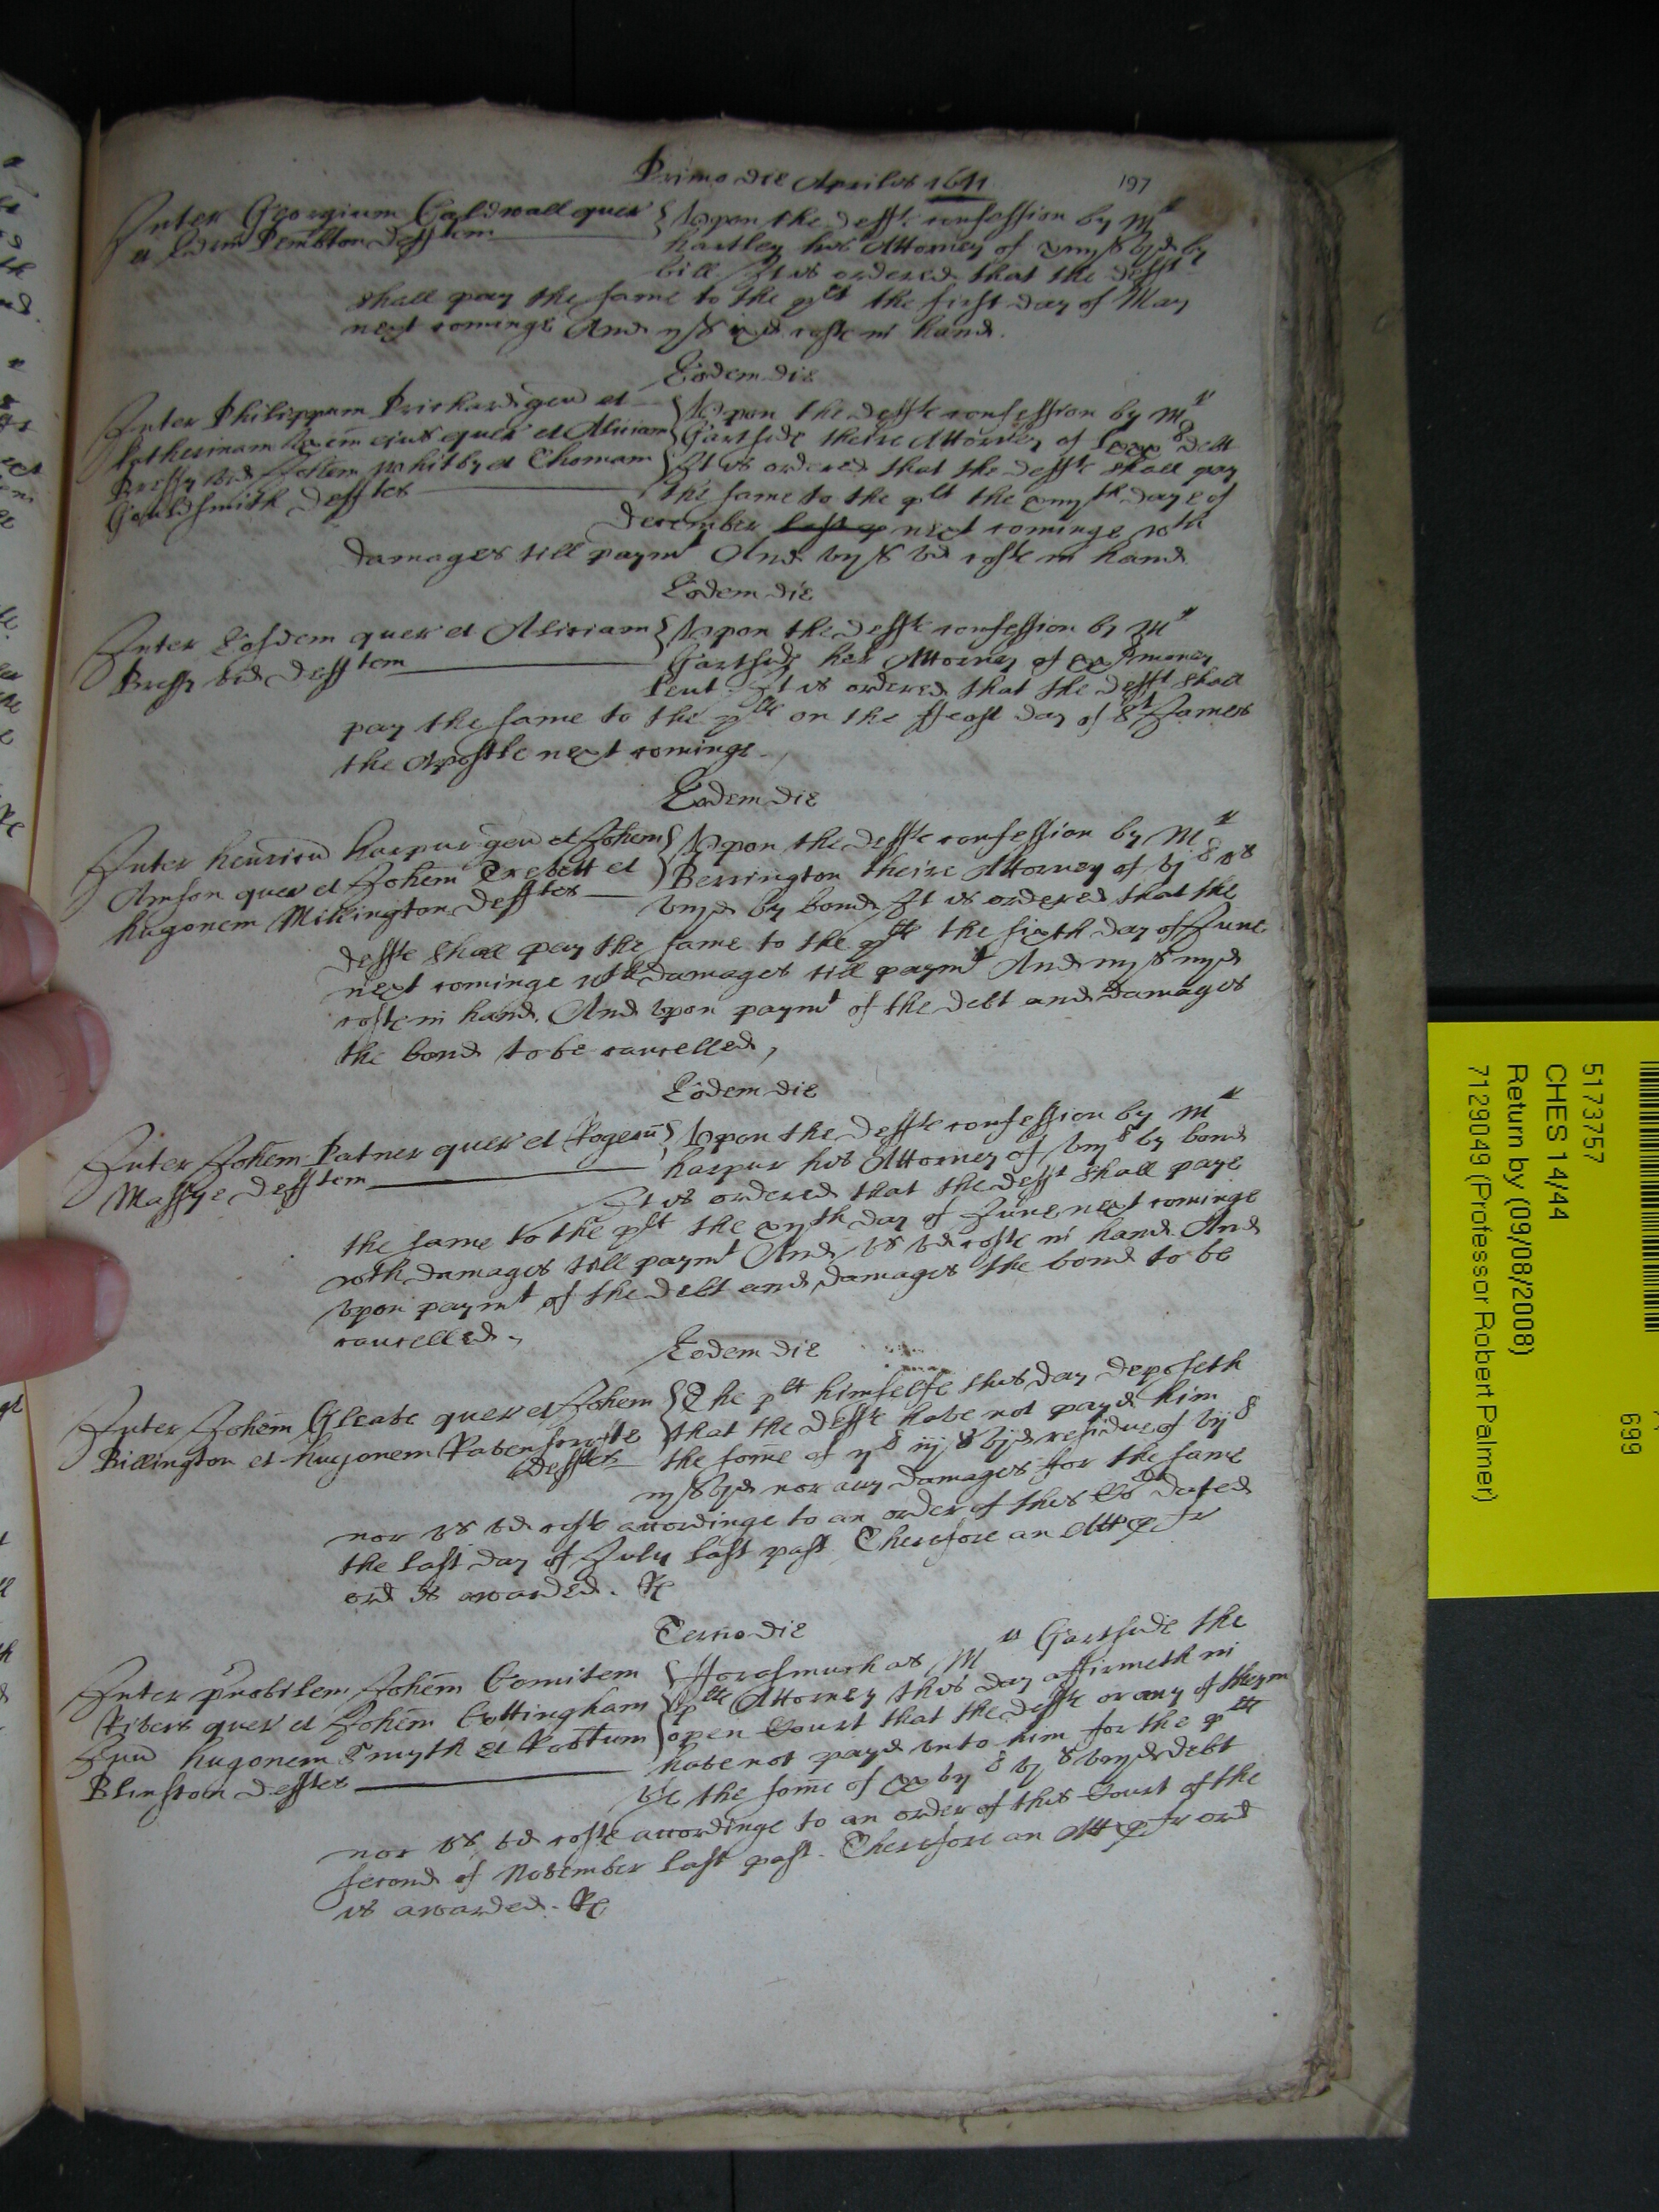 Primo die Aprilis 1641
197
Inter Georgium Caldwall quer
et Pembton defftem
Vpon the defftℯ confession by Mr
Hartley his Attorney of by
bill It is ordered that the defft
shall pay the same to the plt the first day of May
next cominge And costℯ in hand.
Eodem die
Inter Philippum Prichard gen et
Katherinam vxem eius quer et Aliciam
Bressy vid Johem Whitby et Thomam
Gouldsmith defftes
Vpon the defftℯ confession by Mr
Gartside theire Attorney of debt
It is ordered that the defftℯ shall pay
the same to the plt the day of
December last p next cominge wth
damages till paymt And vijs vd costℯ in hand
Eodem die
Inter Eosdem quer et Aliciam
Bressy vid defftem
Vpon the defftℯ confession by Mr
Gartside her Attorney of xxli money
lent It is ordered that the defft shall
pay the same to the pltℯ on the ffeast day of St James
the Apostle next cominge
Eodem die
Inter Henricu Harpur gen et Johem
Amson quer et Johem Trevett et
Hugonem Millington defftes
Vpon the defftℯ confession by Mr
Berrington theire Attorney of vjli xs
viijd by bond It is ordered that the
defftℯ shall pay the same to the pltℯ the sixth day of June
next cominge wth damages till paymt And iijs iiijd
costℯ in hand. And vpon paymt of the debt and damages
the bond to be cancelled,
Eodem die
Inter Johem Patner quer et Rogeru
Massye defftem
Vpon the defftℯ confession by Mr
Harpur his Attorney of viijli by bond
It is ordered that the defft shall paye
the same to the plt the xijth day of June next cominge
wth damages till paymt And vs vd costℯ in hand And
vpon paymt of the debt and damages the bond to be
cancelled.
Eodem die
Inter Johem Gleave quer et Johem
Billington et Hugonem Ravenscrofte
defftes
The plt himselfe this day deposeth
that the defftℯ have not payd him
the some of ijli iijs vjd residue of vijli
iijs vjd nor any damages for the same
nor vs vd costℯ accordinge to an order of this Co dated
the last day of July last past. Therefore an Att p fr
ord is awarded. &c
Tercio die
Inter pnobilem Johem Comitem
Rivers quer et Johem Cottingham
Hugonem Smyth et Robtum
Blinston defftes
fforasmuch as Mr Gartside the
pltℯ Attorney this day affirmeth in
open Court that the defftℯ or any of theym
have not payd vnto him for the pltℯ
vse the some of xxvjli vjs viijd debt
nor vs vd costℯ accordinge to an order of this Court of the
second of November last past. Therefore an Att p fr ord
is awarded. &c
5173757
CHES 14/44
Return by (09/08/2008)
7129049 (Professor Robert Palmer)
699